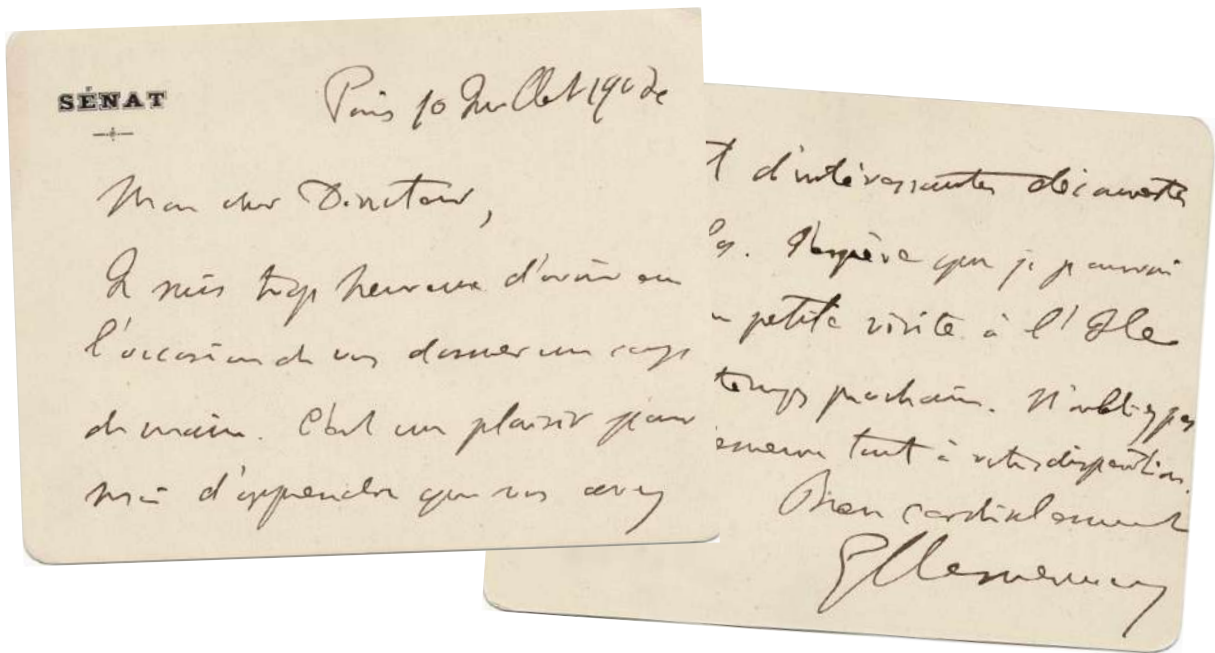 SÉNAT
Paris 10 Juillet 190
Mon cher Directeur,
Je suis trop heureux d'avoir eu
l'occasion de vous donner un coup
de main. C'est un plaisir pour
moi d'apprendre que vous avez
t d'intéressantes découvertes
J'espère que je pourrai
petite visite à l'Ile
temps prochain. N'oubliez pas
tout à votre disposition.
Bien cordialement
GClemenceau